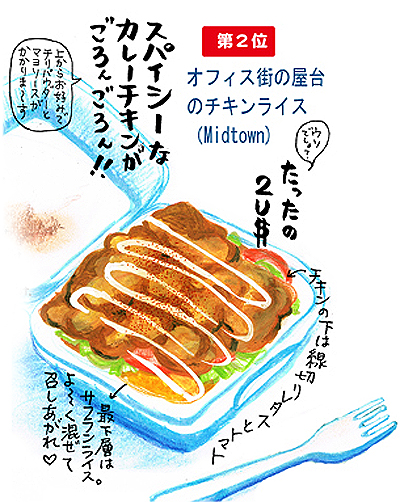 第2位
オフィス街の屋台
のチキンライス
(Midtown)
スパイシーな
カレーチキンが
ごろんごろん!!
上からお好みで
チリパウダーと
マヨソースが
かかりま〜す
ウソ
でしょ?
たったの
2U$
チキンの下は線切り
トマトとレタス
最下層は
サフランライス。
よ〜く混ぜて
召しあがれ♡